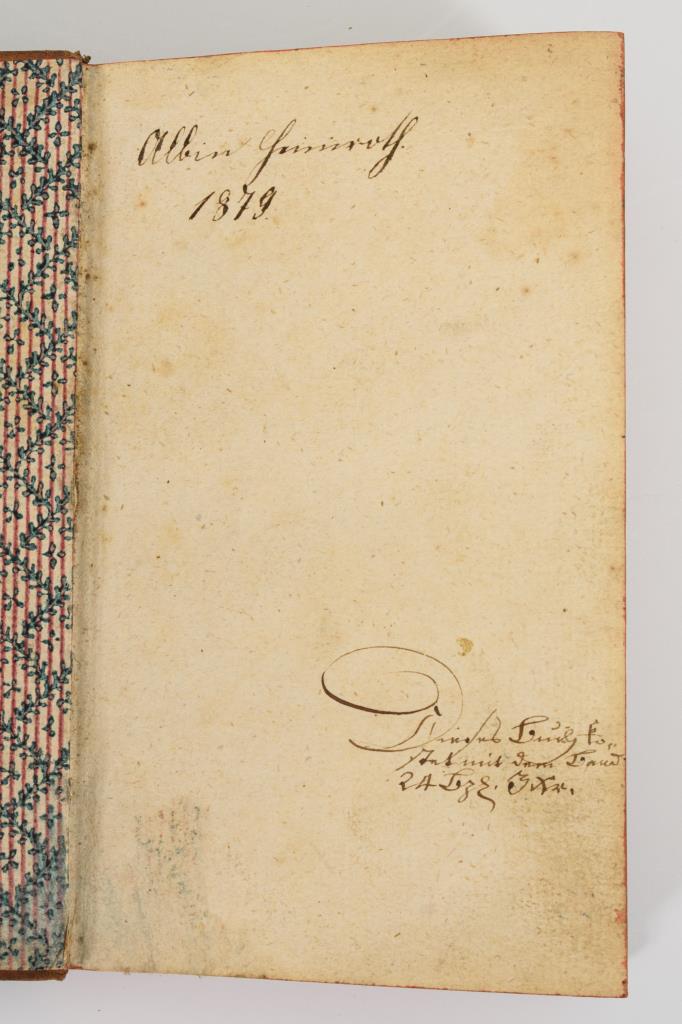 Albin Heimroth
1879
Dieses Buch ko-
stet mit dem Band
24 Bz. 3 Xr.